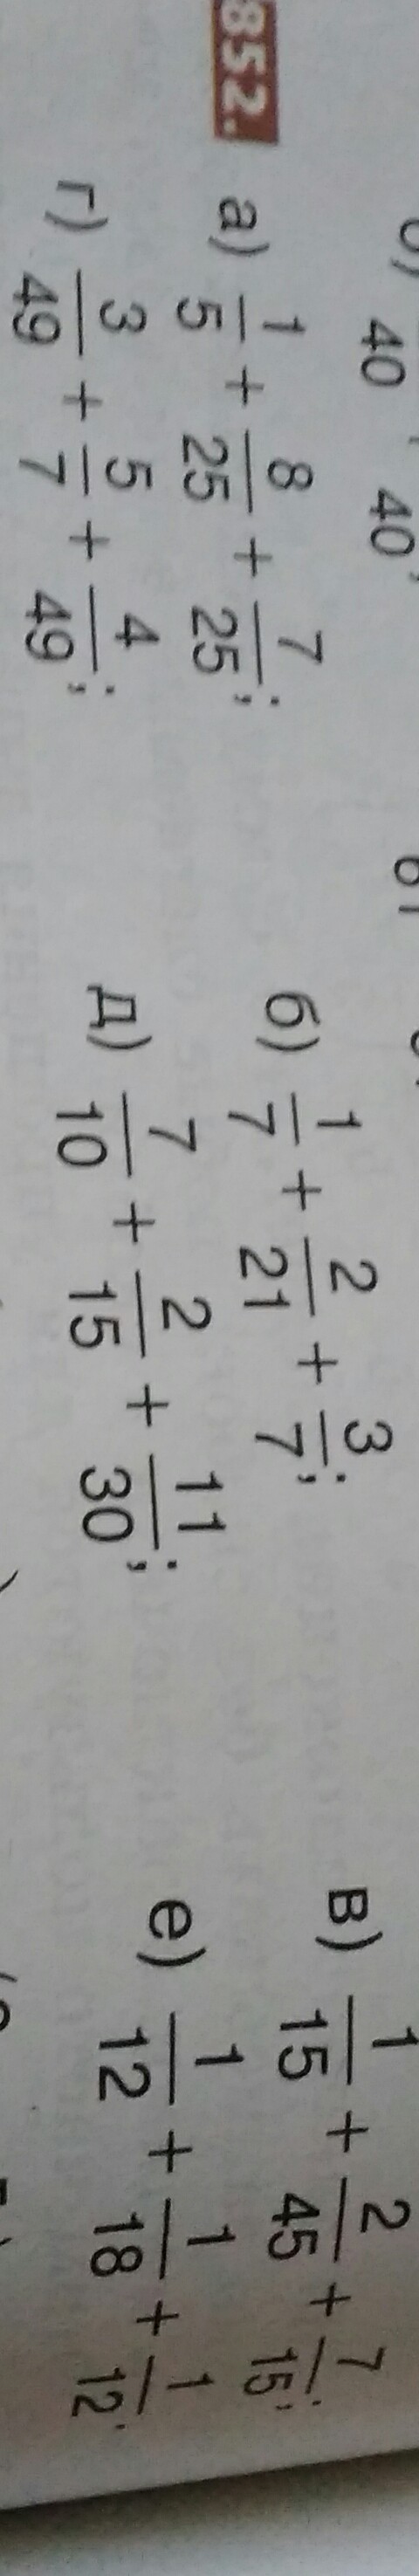 40 40,
852. а) 1/5 + 8/25 + 7/25; б) 1/7 + 2/21 + 3/7; в) 1/15 + 2/45 + 7/15;
г) 3/49 + 5/7 + 4/49; д) 7/10 + 2/15 + 11/30; е) 1/12 + 1/18 + 1/12.